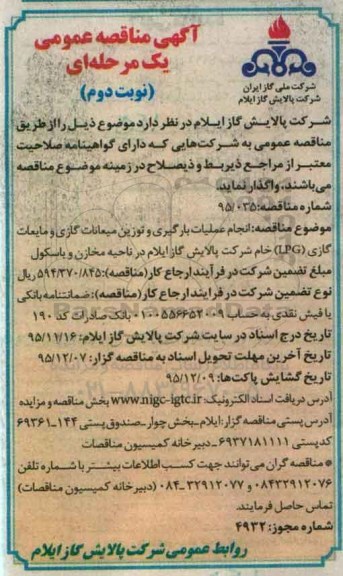 آگهی مناقصه عمومی
یک مرحله‌ای
(نوبت دوم)
شرکت ملی گاز ایران
شرکت پالایش گاز ایلام
شرکت پالایش گاز ایلام در نظر دارد موضوع ذیل را از طریق
مناقصه عمومی به شرکت‌هایی که دارای گواهینامه صلاحیت
معتبر از مراجع ذیربط و ذیصلاح در زمینه موضوع مناقصه
می‌باشند، واگذار نماید.
شماره مناقصه: ۹۵/۰۳۵
موضوع مناقصه: انجام عملیات بارگیری و توزین میعانات گازی و مایعات
گازی (LPG) خام شرکت پالایش گاز ایلام در ناحیه مخازن و باسکول
مبلغ تضمین شرکت در فرآیند ارجاع کار (مناقصه): ۵۹۴/۳۷۰/۸۴۵ ریال
نوع تضمین شرکت در فرایند ارجاع کار (مناقصه): ضمانتنامه بانکی
یا فیش نقدی به حساب ۰۱۰۰۵۵۶۶۵۲۰۰۹ بانک صادرات کد ۱۹۰
تاریخ درج اسناد در سایت شرکت پالایش گاز ایلام: ۹۵/۱۱/۱۶
تاریخ آخرین مهلت تحویل اسناد به مناقصه گزار: ۹۵/۱۲/۰۷
تاریخ گشایش پاکت‌ها: ۹۵/۱۲/۰۹
آدرس دریافت اسناد الکترونیک: www.nigc-igtc.ir بخش مناقصه و مزایده
آدرس پستی مناقصه گزار: ایلام-بخش چوار-صندوق پستی ۱۴۴-۶۹۳۶۱
کدپستی ۶۹۳۷۱۸۱۱۱۱-دبیرخانه کمیسیون مناقصات
* مناقصه گران می‌توانند جهت کسب اطلاعات بیشتر با شماره تلفن
۰۸۴۳۲۹۱۲۰۷۶ و ۳۲۹۱۲۰۷۷-۰۸۴ (دبیرخانه کمیسیون مناقصات)
تماس حاصل فرمایند.
شماره مجوز: ۴۹۳۲
روابط عمومی شرکت پالایش گاز ایلام